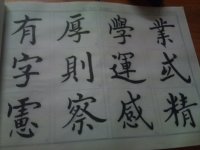 有厚學業
字則運式
憲察感精